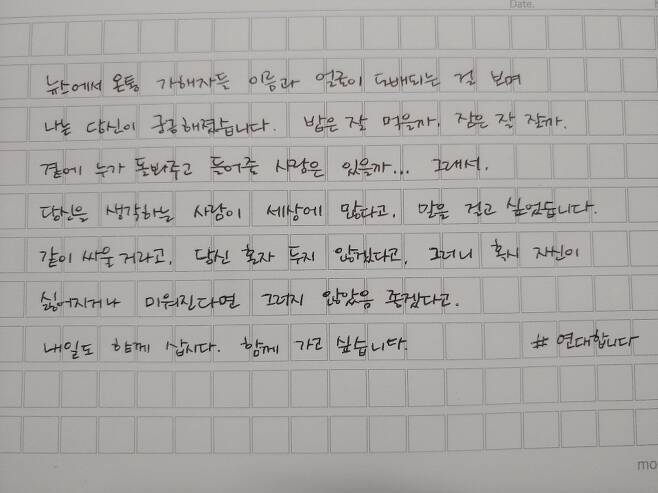 Date.
뉴스에서 온통 가해자들 이름과 얼굴이 도배되는 걸 보며
나는 당신이 궁금해졌습니다. 밥은 잘 먹을까, 잠은 잘 잘까.
곁에 누가 돌봐주고 들어줄 사람은 있을까... 그래서,
당신을 생각하는 사람이 세상에 많다고, 말을 걸고 싶었습니다.
같이 싸울 거라고, 당신 혼자 두지 않겠다고, 그러니 혹시 자신이
싫어지거나 미워진다면 그러지 않았음 좋겠다고.
내일도 함께 삽시다. 함께 가고 싶습니다. #연대합니다
mo